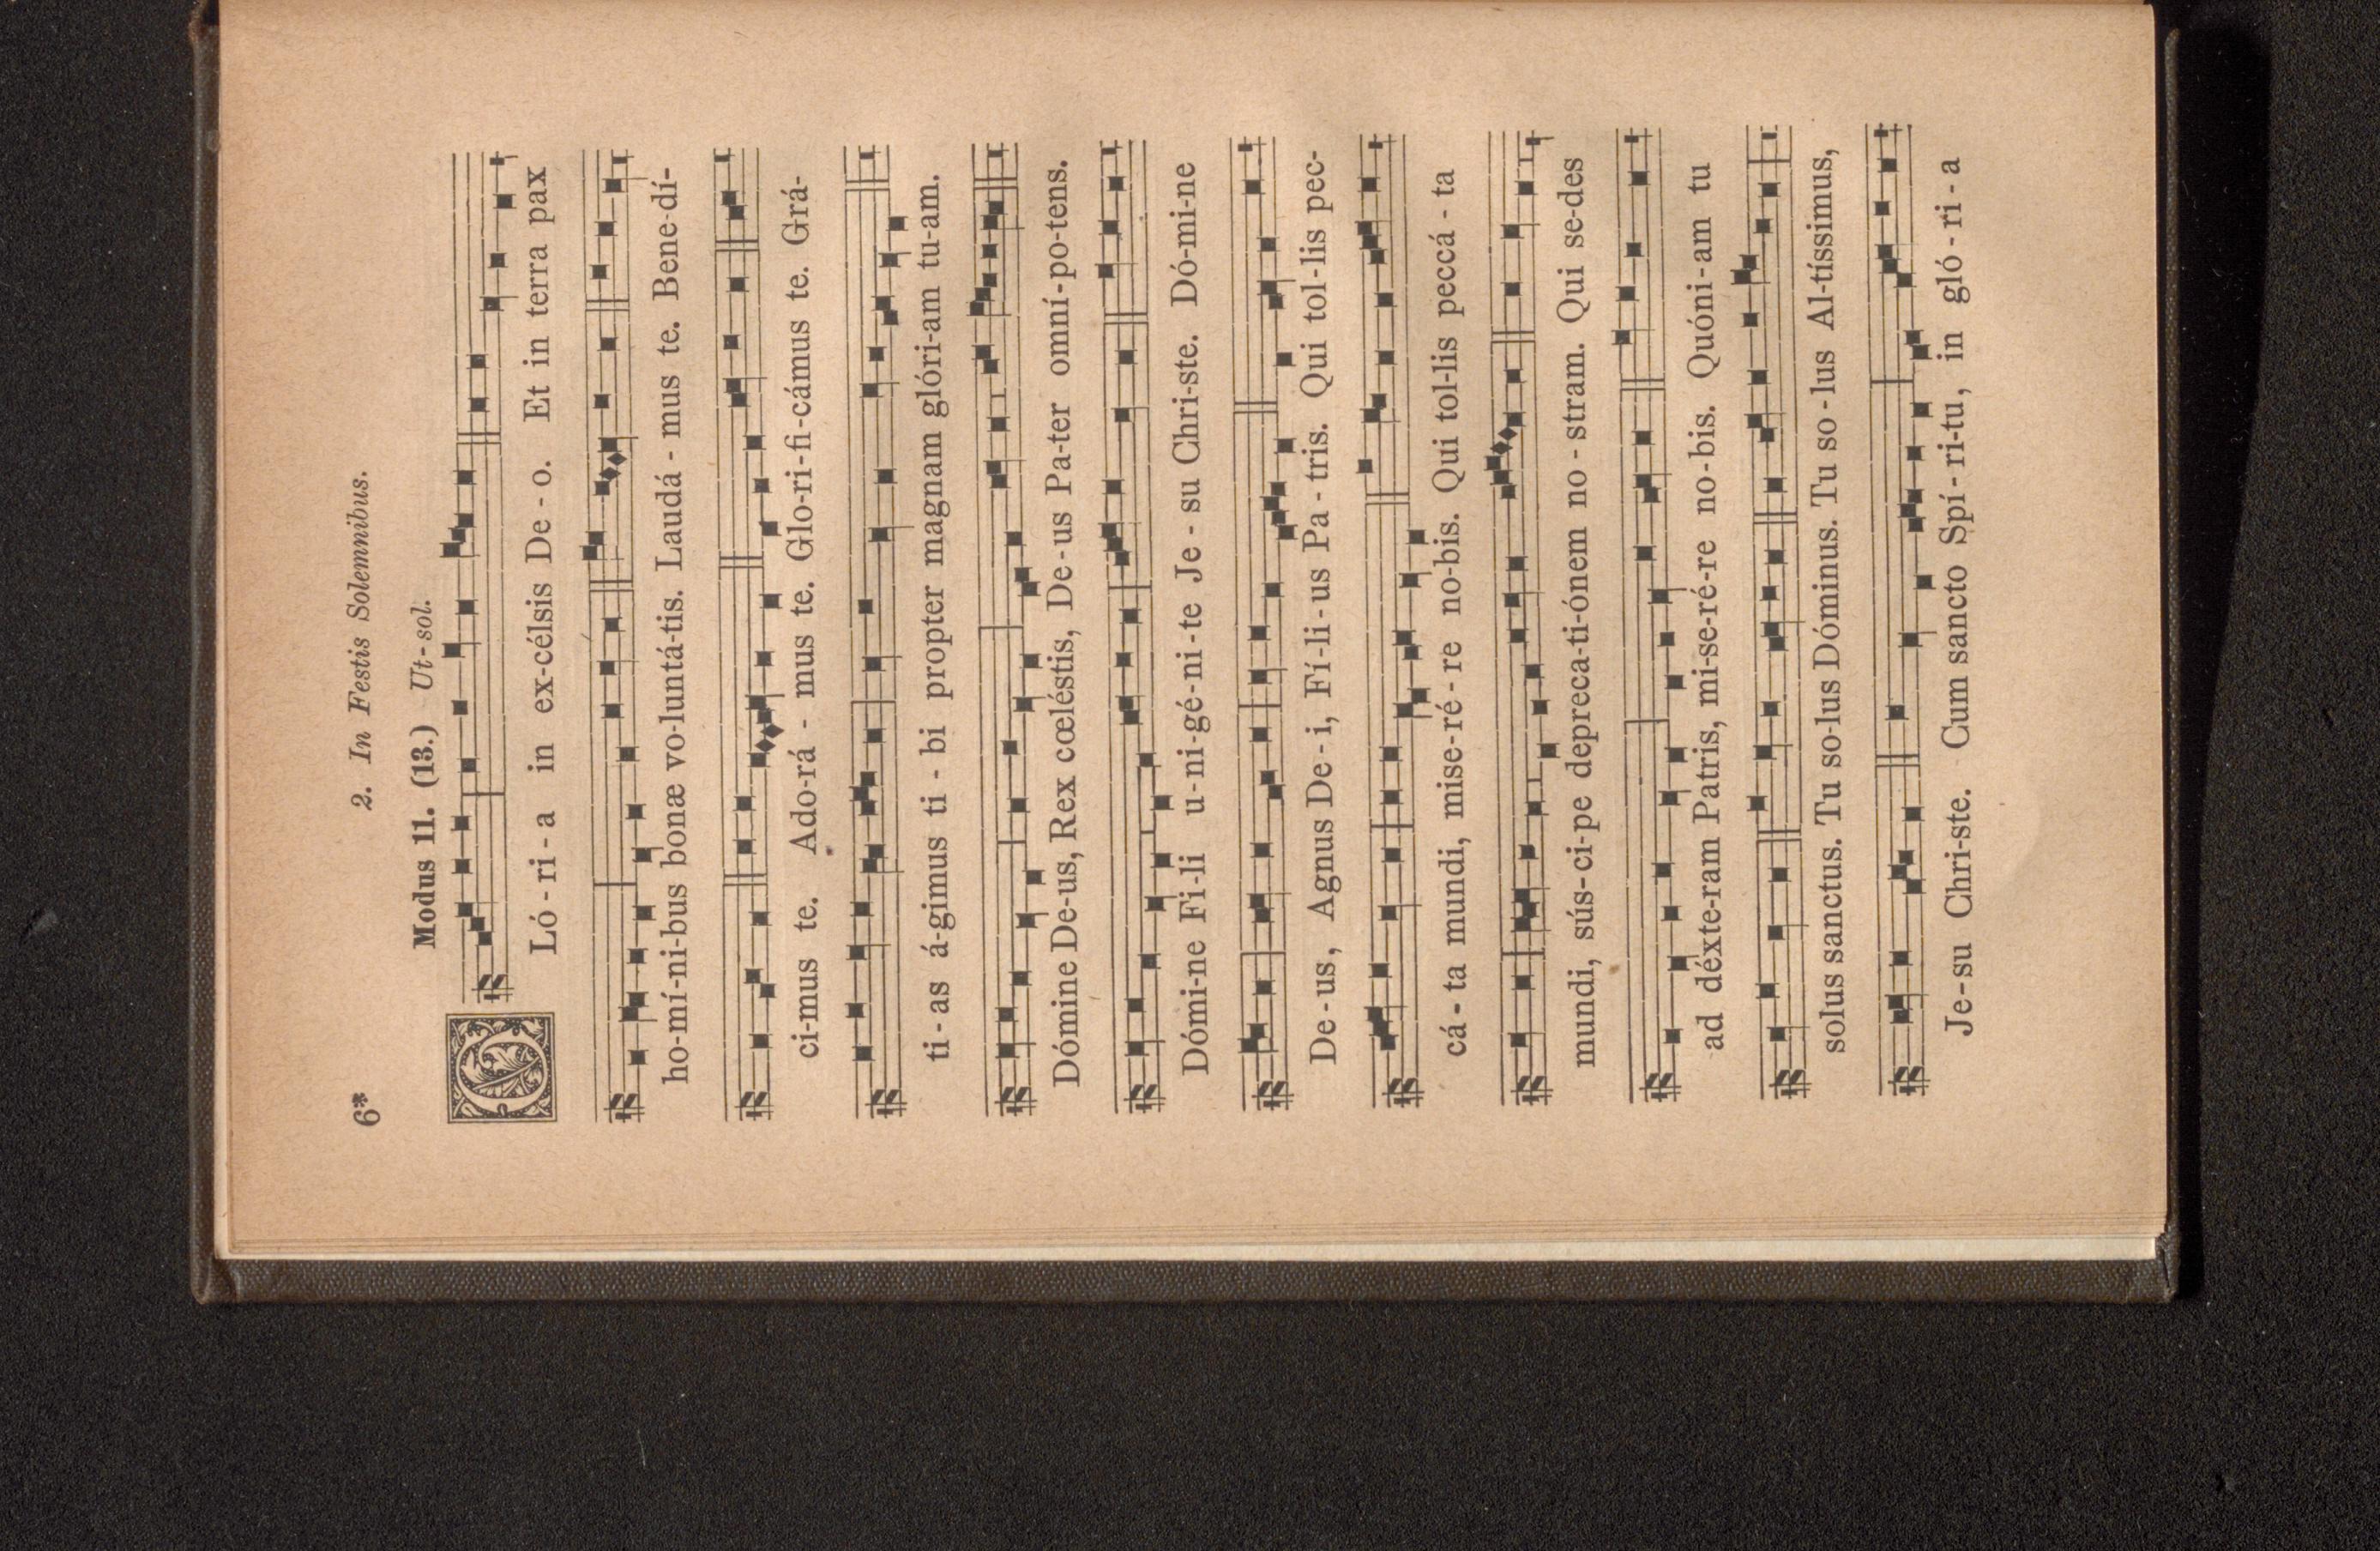 6*
2. In Festis Solemnibus.
Modus 11. (13.) Ut-sol.
GLó-ri-a in ex-célsis De-o. Et in terra pax
ho-mí-ni-bus bonæ vo-luntá-tis. Laudá-mus te. Bene-dí-
ci-mus te. Ado-rá-mus te. Glo-ri-fi-cámus te. Grá-
ti-as á-gimus ti-bi propter magnam glóri-am tu-am.
Dómine De-us, Rex cœléstis, De-us Pa-ter omní-po-tens.
Dómi-ne Fi-li u-ni-gé-ni-te Je-su Chri-ste. Dó-mi-ne
De-us, Agnus De-i, Fí-li-us Pa-tris. Qui tol-lis pec-
cá-ta mundi, mise-ré-re no-bis. Qui tol-lis peccá-ta
mundi, sús-ci-pe depreca-ti-ónem no-stram. Qui se-des
ad déxte-ram Patris, mi-se-ré-re no-bis. Quóni-am tu
solus sanctus. Tu so-lus Dóminus. Tu so-lus Al-tíssimus,
Je-su Chri-ste. Cum sancto Spí-ri-tu, in gló-ri-a